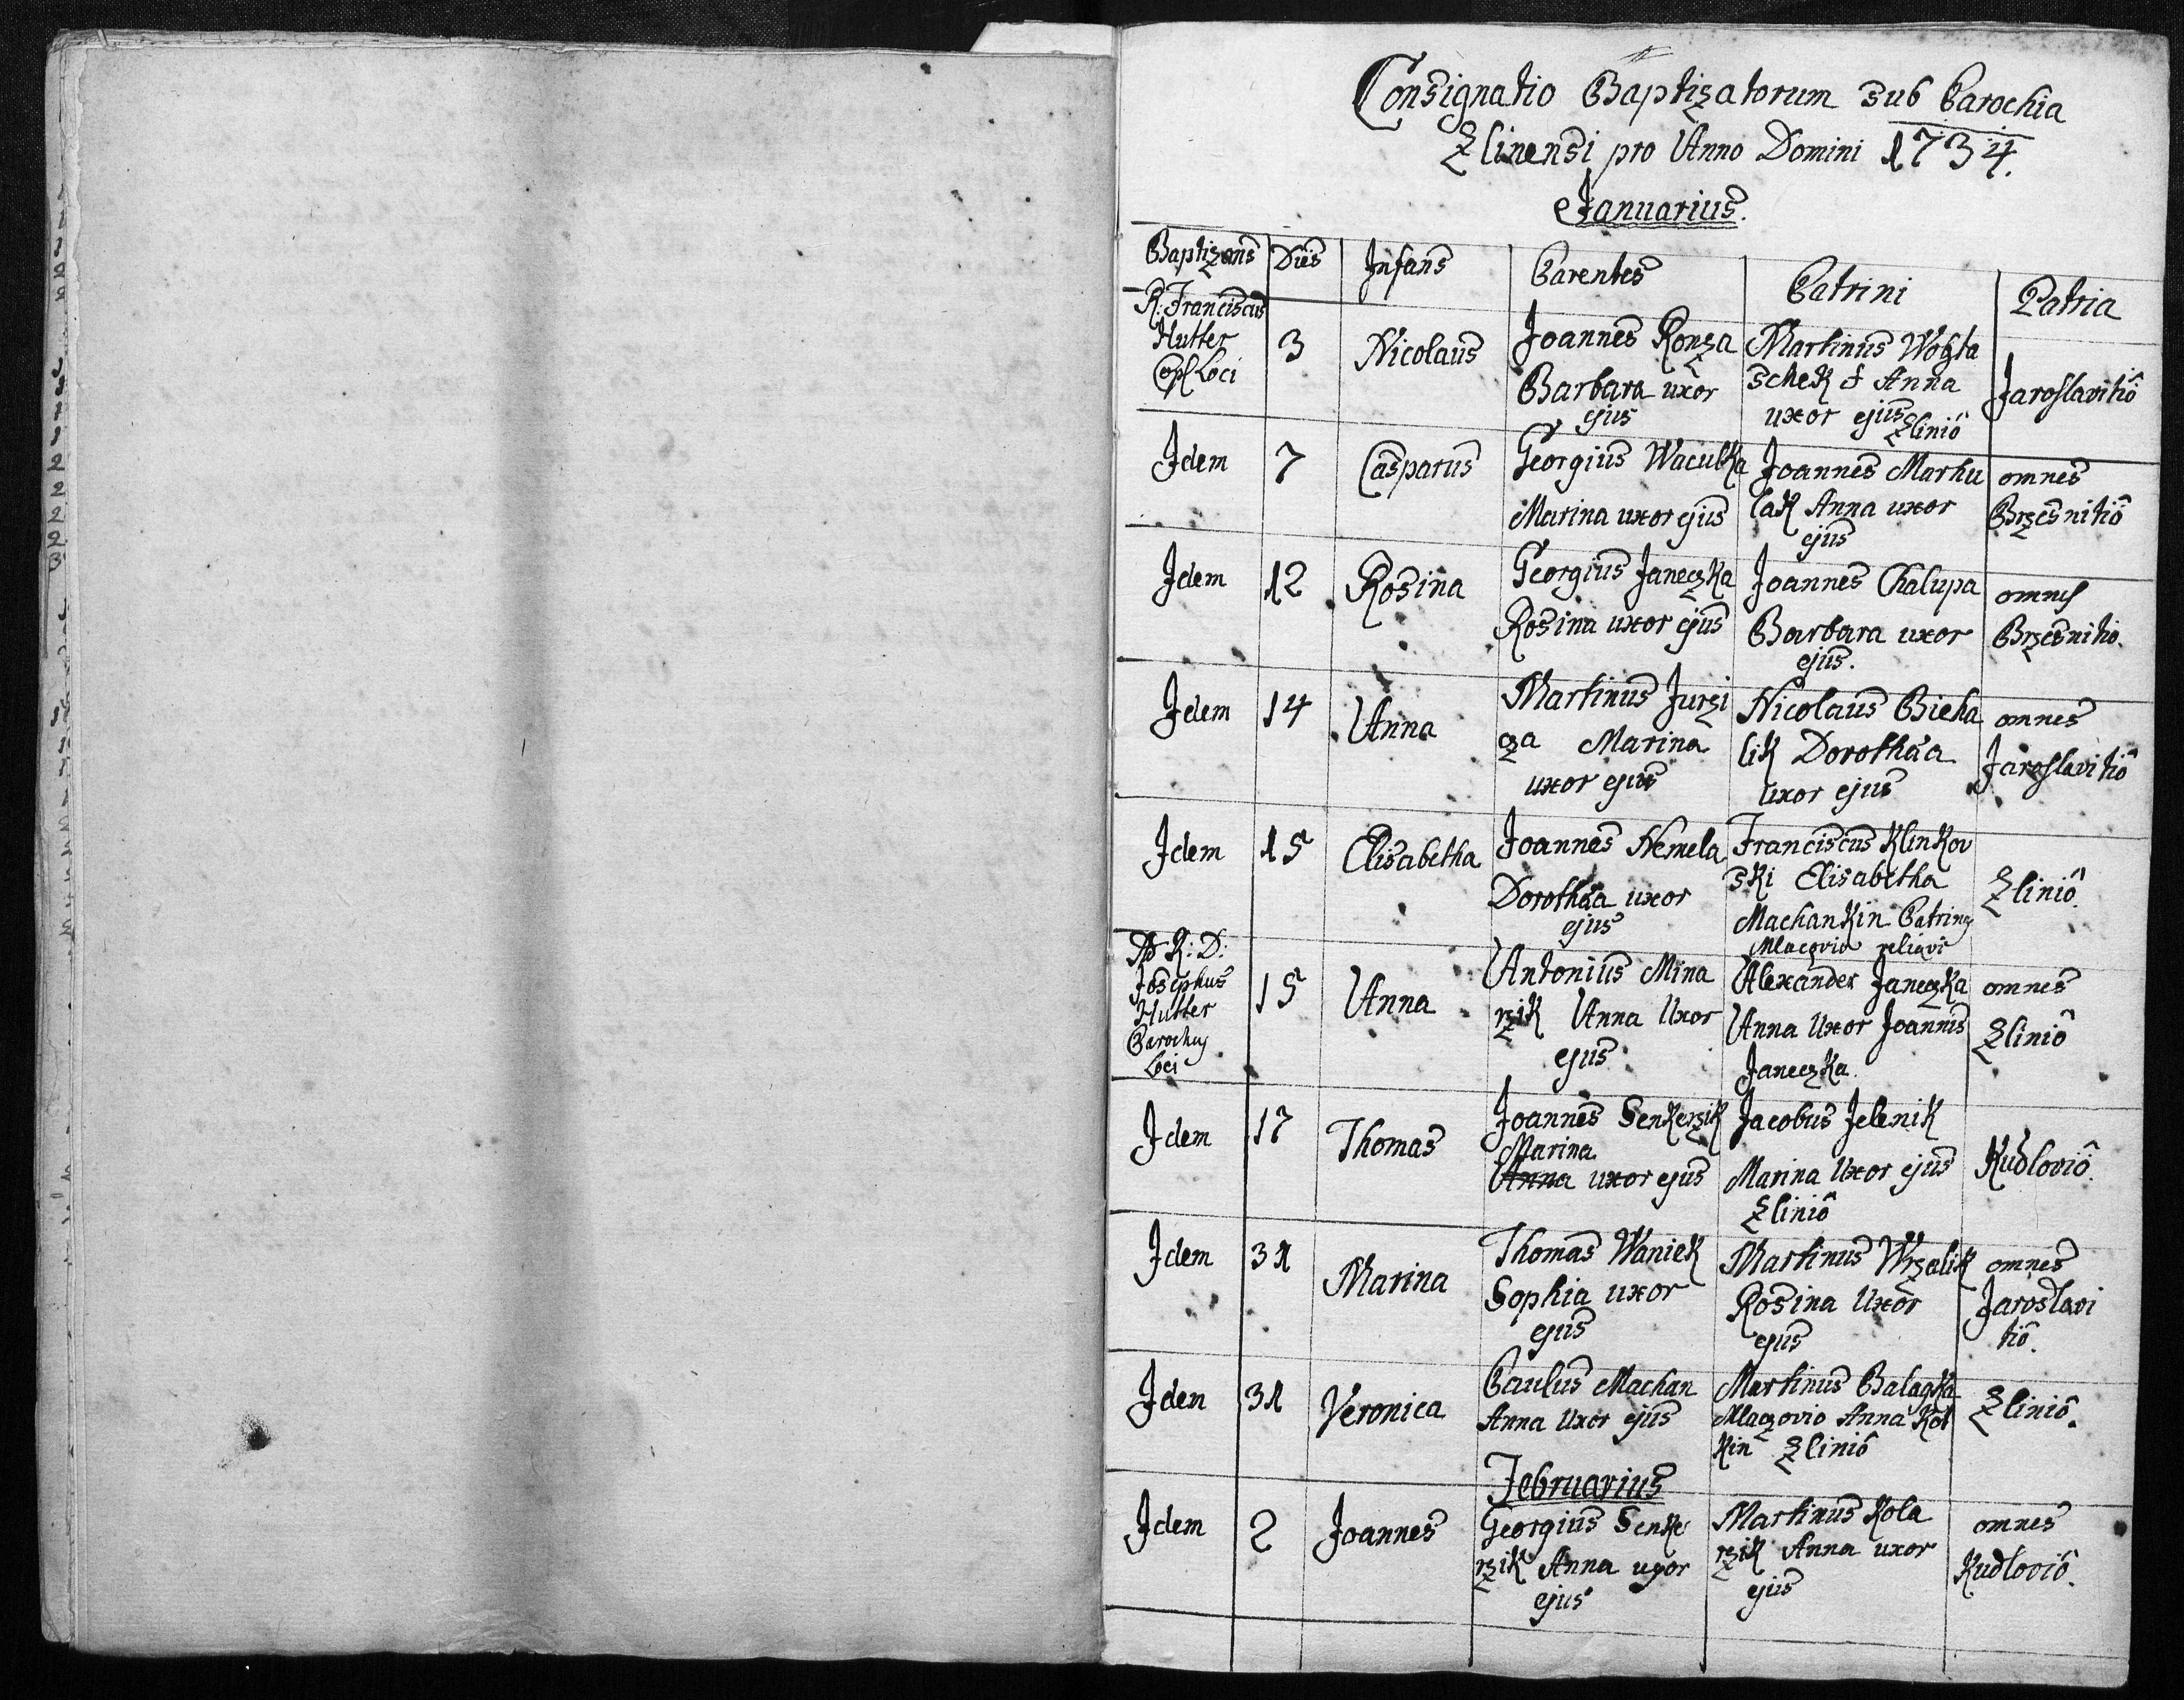 Consignatio Baptizatorum sub Parochia
Zlinensi pro Anno Domini 1734.
Januarius.
Baptizans Dies Infans Parentes Patrini Patria
R: Franciscus
Hutter
Cop: Loci
3
Nicolaus
Joannes Ronza
Barbara uxor
ejus
Martinus Wogta
schek & Anna
uxor ejus
Zliniô
Jaroslavitiô
Idem
7
Casparus
Georgius Waculka
Marina uxor ejus
Joannes Marhu
lak Anna uxor
ejus
omnes
Brzesnitiô
Idem
12
Rosina
Georgius Janeczka
Rosina uxor ejus
Joannes Chalupa
Barbara uxor
ejus.
omnes
Brzesnitio.
Idem
14
Anna
Martinus Jurzi
cza Marina
uxor ejus
Nicolaus Bieha
lik Dorothæa
uxor ejus
omnes
Jaroslavitiô
Idem
15
Elisabetha
Joannes Nemela
Dorothæa uxor
ejus
Franciscus Klinkov
ski Elisabetha
Machankin Patrina
Mlaczovio reliqui
Zliniô.
R: D:
Josephus
Hutter
Parochus
Loci
15
Anna
Antonius Mina
rzik Anna Uxor
ejus
Alexander Janeczka
Anna Uxor Joannis
Janeczka.
omnes
Zliniô
Idem
17
Thomas
Joannes Senkerzik
Marina
Anna uxor ejus
Jacobus Jelenik
Marina Uxor ejus
Zliniô
Kudloviô.
Idem
31
Marina
Thomas Waniek
Sophia uxor
ejus
Martinus Wrzalik
Rosina Uxor
ejus
omnes
Jaroslavi
tiô.
Idem
31
Veronica
Paulus Machan
Anna Uxor ejus
Martinus Balaczka
Mlaczovio Anna Kot
kin Zliniô
Zliniô.
Februarius
Idem
2
Joannes
Georgius Senke
rzik Anna uxor
ejus
Martinus Kola
rzik Anna uxor
ejus
omnes
Kudloviô.